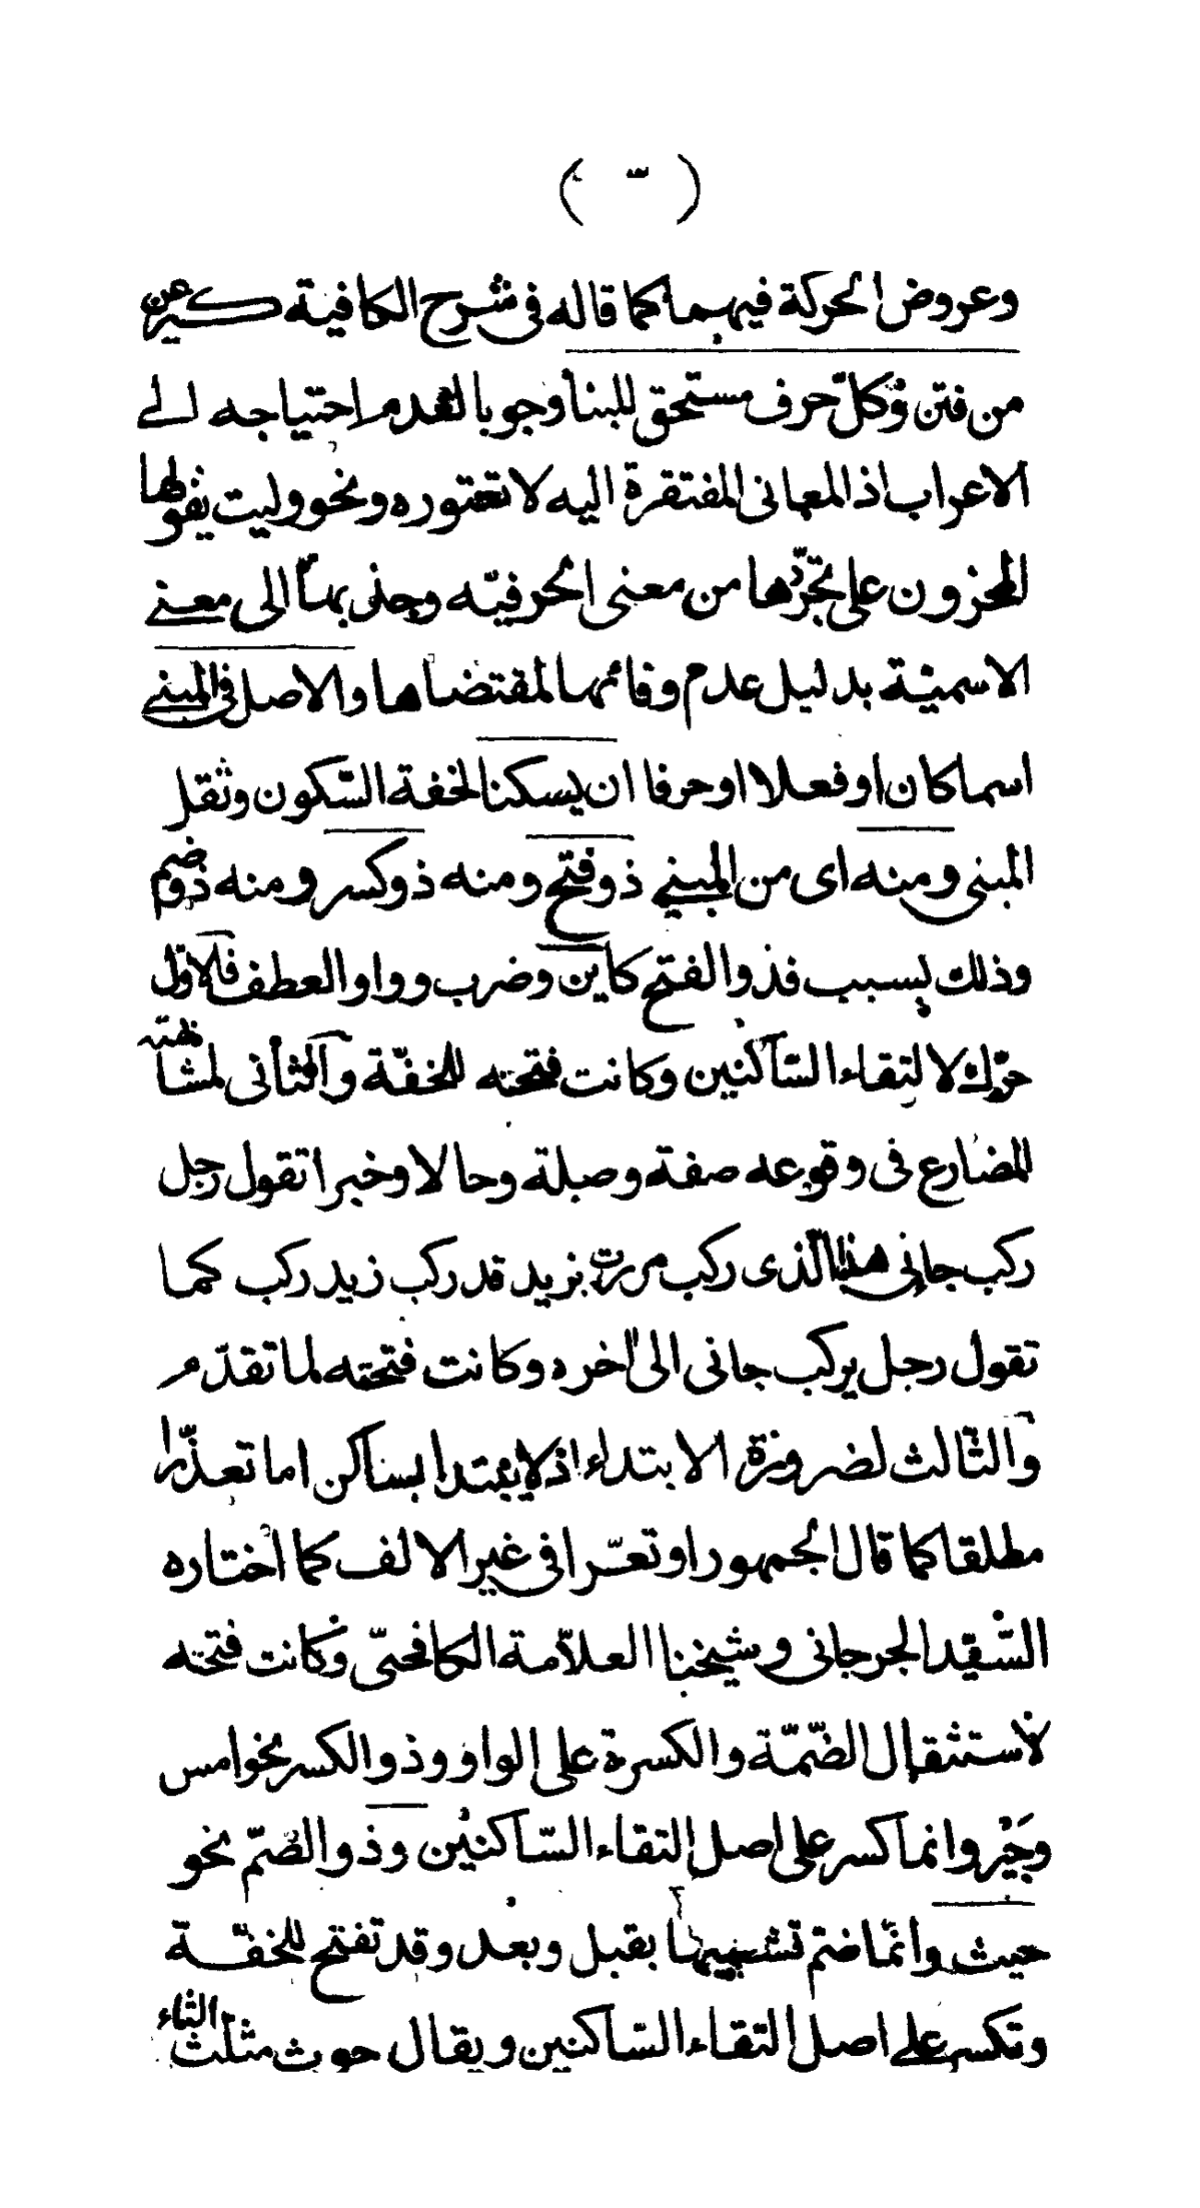 وعروض الحركة فيهما كما قاله فى شرح الكافية كيرعن
من فتن وكلّ حرف مستحق للبنا وجوبا لعدم احتياجه الے
الاعراب اذ المعانى المفتقرة اليه لا تعتوره ونحو وليت يقولها
المحزون على تجرّدها من معنى الحرفيّه وجذبها الى معنے
الاسميّة بدليل عدم وفائها لمقتضاها والاصل فى المبنے
اسما كان او فعلا او حرفا ان يسكنا لخفة السّكون وثقل
المبنى ومنه اى من المبنے ذو فتح ومنه ذو كسر ومنه ذو ضم
وذلك بسبب فذو الفتح كاين وضرب وواو العطف فالاول
حرّك لالتقاء السّاكنين وكانت فتحته للخفّة والثانى لمشابهته
المضارع فى وقوعه صفة وصلة وحالا وخبرا تقول رجل
ركب جانى هذا الّذى ركب مررت بزيد قد ركب زيد ركب كما
تقول رجل يركب جانى الى اخره وكانت فتحته لما تقدّم
والثّالث لضرورة الابتداء اذ لا يبتدا بساكن اما تعذّرا
مطلقا كما قال الجمهور او تعسّرا فى غير الالف كما اختاره
السّيّد الجرجانى وشيخنا العلاّمة الكافحىّ وكانت فتحته
لاستثقال الضّمّة والكسرة على الواو وذو الكسر نحو امس
وجَيْر وانما كسر على اصل التقاء السّاكنين وذو الضّمّ نحو
حيث وانّما ضمّ تشبيها بقبل وبعد وقد تفتح للخفّة
وتكسر علے اصل التقاء السّاكنين ويقال حوث مثلث الثاء